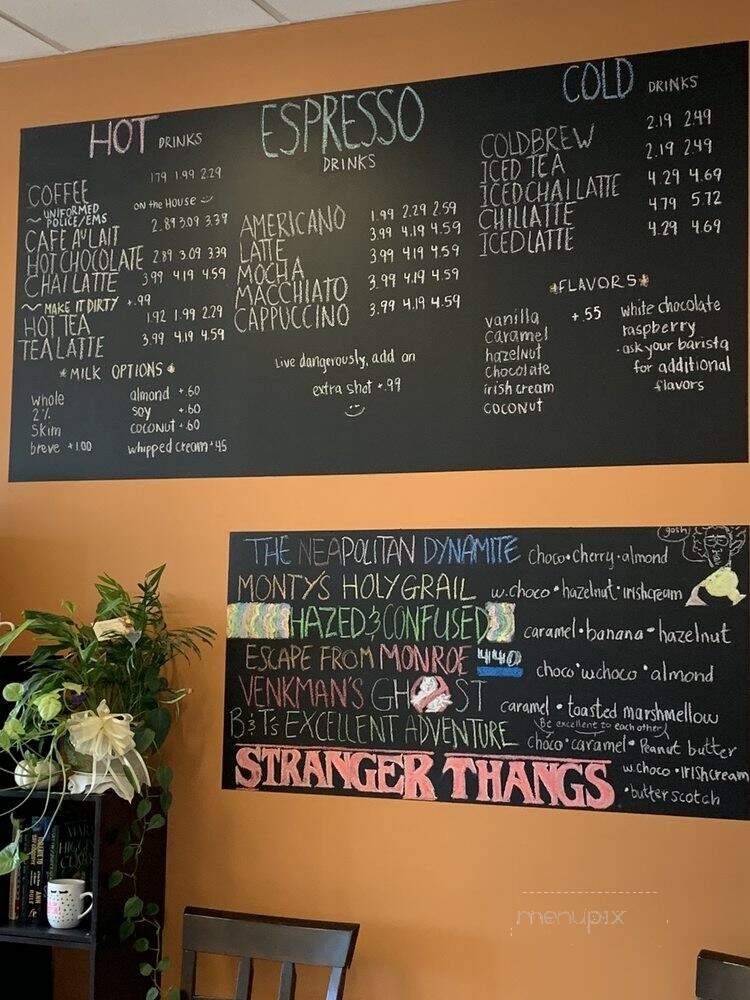 HOT DRINKS
COFFEE 1.79 1.99 2.29
~ UNIFORMED POLICE/EMS on the House
CAFE AU LAIT 2.89 3.09 3.39
HOT CHOCOLATE 2.89 3.09 3.39
CHAI LATTE 3.99 4.19 4.59
~ MAKE IT DIRTY +.99
HOT TEA 1.92 1.99 2.29
TEA LATTE 3.99 4.19 4.59
*MILK OPTIONS*
whole
2%
Skim
breve +1.00
almond +.60
soy +.60
coconut +.60
whipped cream +.45
ESPRESSO
DRINKS
AMERICANO 1.99 2.29 2.59
LATTE 3.99 4.19 4.59
MOCHA 3.99 4.19 4.59
MACCHIATO 3.99 4.19 4.59
CAPPUCCINO 3.99 4.19 4.59
Live dangerously, add an
extra shot +.99
COLD DRINKS
COLDBREW 2.19 2.49
ICED TEA 2.19 2.49
ICED CHAI LATTE 4.29 4.69
CHILLATTE 4.79 5.72
ICED LATTE 4.29 4.69
*FLAVORS*
vanilla +.55
caramel
hazelnut
chocolate
irish cream
coconut
white chocolate
raspberry
-ask your barista
for additional
flavors
gosh!
THE NEAPOLITAN DYNAMITE choco•cherry•almond
MONTY'S HOLY GRAIL w.choco•hazelnut•irishcream
HAZED & CONFUSED caramel•banana•hazelnut
ESCAPE FROM MONROE 440 choco•wchoco•almond
VENKMAN'S GHOST caramel•toasted marshmellow
Be excellent to each other
B&T's EXCELLENT ADVENTURE choco•caramel•Peanut butter
STRANGER THANGS w.choco•irishcream
•butterscotch
menupix